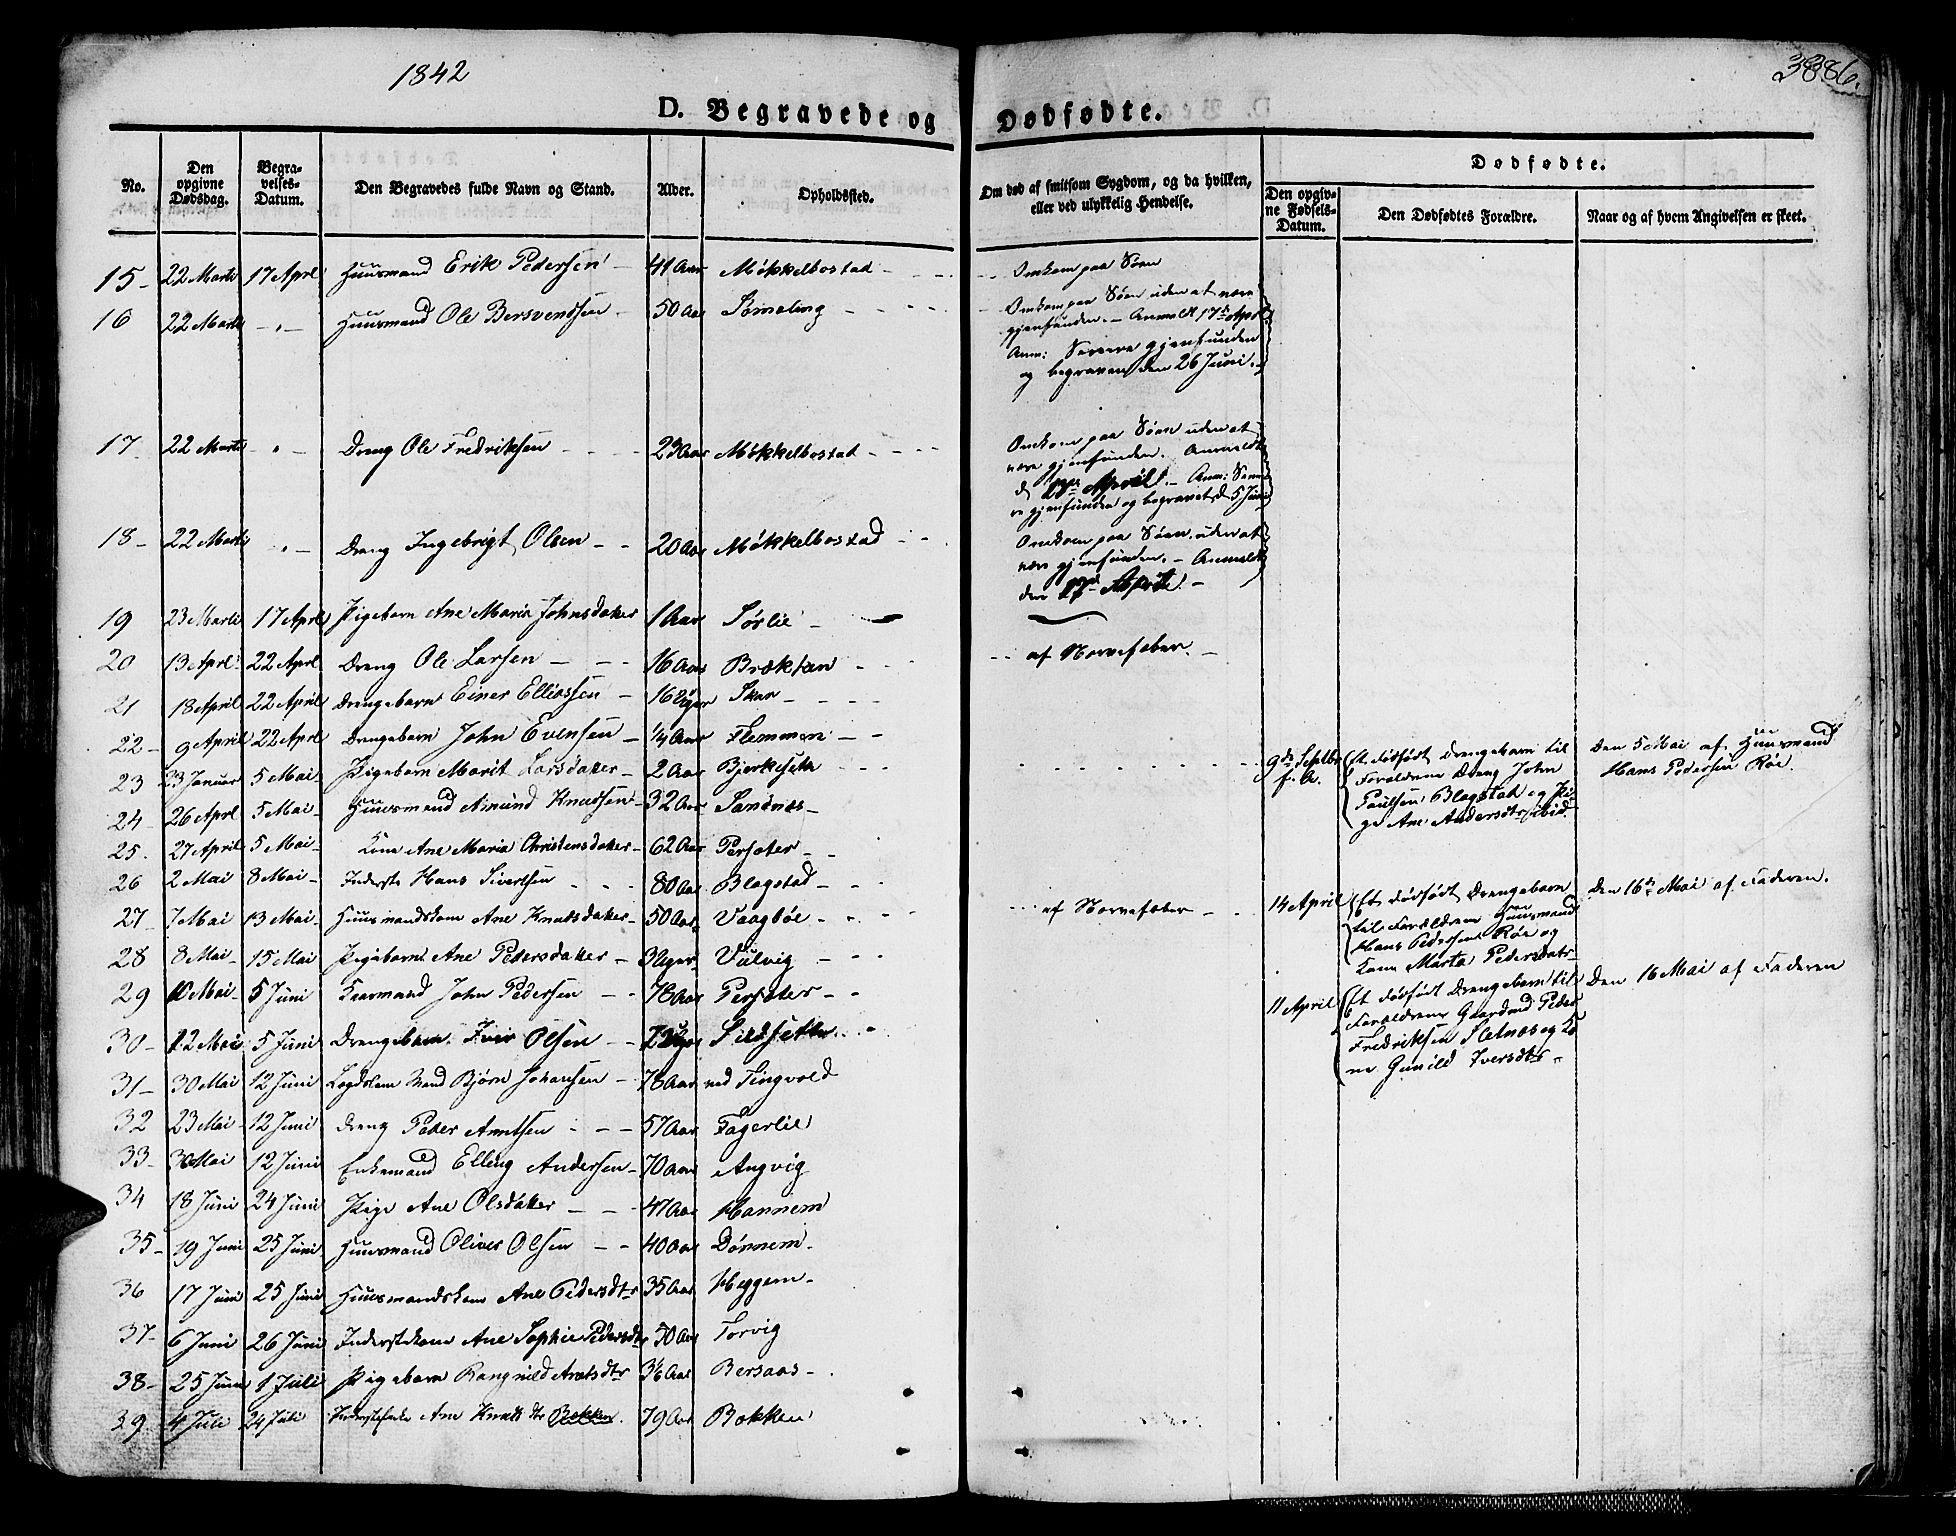 1842
3886.
D. Begravede og Dødfødte.
No.
Den opgivne Dødsdag.
Begravelses-Datum.
Den Begravedes fulde Navn og Stand.
Alder.
Opholdssted.
Om død af smitsom Sygdom, og da hvilken, eller ved ulykkelig Hendelse.
Dødfødte.
Den opgivne Fødsels-Datum.
Den Dødfødtes Forældre.
Naar og af hvem Angivelsen er skeet.
15 - 22 Marts 17 Aprl Huusmand Erik Pedersen 41 Aar Mökkelbostad - Omkom paa Söen
16 22 Marts - " - Huusmand Ole Bersvendsen 50 Aar Sömoling - Omkom paa Söen uden at være
gjenfunden. - Anmeldt 17de Aprl
Anm: Senere gjenfunden
og begraven den 26 Juni. -
17 22 Marts - " - Dreng Ole Fredriksen 23 Aar Mökkelbostad - Omkom paa Söen uden at
være gjenfunden. Anmeldt
d 17de April. - Anm: Sene
re gjenfunden og begravet d 5 Juni
18 - 22 Marts - " - Dreng Ingebrigt Olsen - 20 Aar Mökkelbostad - Omkom paa Söen uden at
være gjenfunden. - Anmeldt
den 17de April. -
19 23 Marts 17 Aprl Pigebarn Ane Maria Johnsdatter 1 Aar Sörlie -
20 13 Aprl 22 Aprl Dreng Ole Larsen - 16 Aar Bræktan - af Nervefeber. -
21 18 April 22 April Drengebarn Einer Elliassen - 16 Uger Skar -
22 - 9 April 22 Aprl Drengebarn John Evensen - 1/4 Aar Flemmen -
23 23 Januar 5 Mai - Pigebarn Marit Larsdatter - 2 Aar Bjerkeseth
9de Septbr f. A. Et dödfödt Drengebarn til
Forældrene Dreng John
Paulsen Blagstad og Pi
ge Ane Andersdtr ibid.
Den 5 Mai af Huusmand
Hans Pedersen Röe.
24 - 26 Aprl 5 Mai - Huusmand Amund Knudsen - 32 Aar Sandnæs -
25. 27 April 5 Mai - Kone Ane Maria Christensdatter - 62 Aar Persæter -
26 2 Mai 8 Mai - Inderst Hans Sivertsen - 80 Aar Blagstad -
27 - 7 Mai 13 Mai - Huusmandskone Ane Knutsdatter - 50 Aar Vaagböe - af Nervefeber -
14 April Et dödfödt Drengebarn
til Forældrene Huusmand
Hans Pedersen Röe og
Kone Marta Pedersdatr -
Den 16de Mai af Faderen.
28 8 Mai - 15 Mai Pigebarn Ane Pedersdatter - 3 Uger - Vulvig -
29 10 Mai - 5 Juni Kaarmand John Pedersen - 78 Aar Persæter -
11 April Et dödfödt Drengebarn til
Forældrene Gaardmd Peder
Fredriksen Stelnæs og Ko
ne Gunild Iversdtr -
Den 16 Mai af Faderen
30 - 12 Mai 5 Juni Drengebarn Iver Olsen - Uger Sildsetter. -
31 - 30 Mai 12 Juni Lægdslem Mand Björn Johansen - 78 Aar ved Tingvold
32 23 Mai - 12 Juni Dreng Peder Arntsen - 57 Aar Fagerlie
33 - 30 Mai 12 Juni Enkemand Elling Andersen - 70 Aar Angvig
34 18 Juni 24 Juni Pige Ane Olsdatter - 47 Aar Hannem
35 - 19 Juni 25 Juni Huusmand Oliver Olsen - 40 Aar Dönnem -
36 17 Juni 25 Juni Huusmandskone Ane Pedersdtr 35 Aar Heggem -
37 - 6 Juni 26 Juni Inderstkone Ane Sophie Pedersdtr 50 Aar Torvig
38 - 25 Juni 1 Juli Pigebarn Rangnild Arntsdtr 3/6 Aar Bersaas -
39 - 4 Juli 24 Juli Ane Knutsdtr Bokken. 79 Aar Bokken